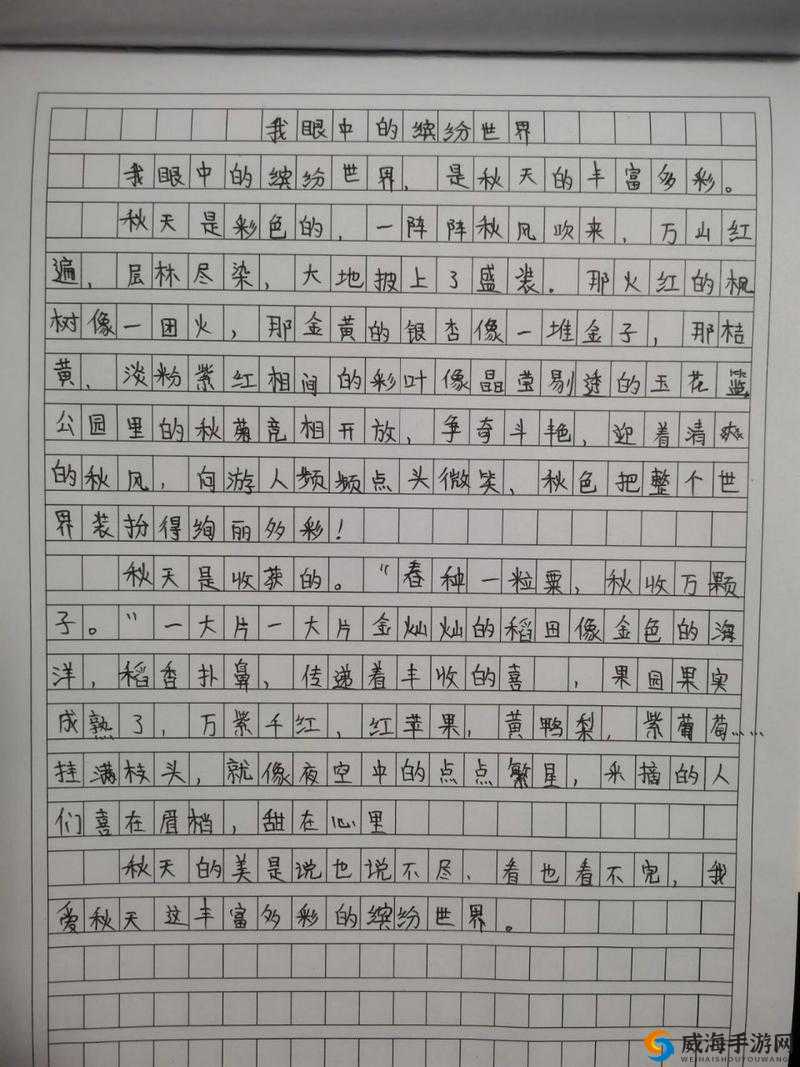 我眼中的缤纷世界
我眼中的缤纷世界，是秋天的丰富多彩。
秋天是彩色的，一阵阵秋风吹来，万山红
遍，层林尽染，大地披上了盛装。那火红的枫
树像一团火，那金黄的银杏像一堆金子，那桔
黄、淡粉紫红相间的彩叶像晶莹剔透的玉花篮
公园里的秋菊竞相开放，争奇斗艳，迎着清爽
的秋风，向游人频频点头微笑、秋色把整个世
界装扮得绚丽多彩！
秋天是收获的。“春种一粒粟，秋收万颗
子。”一大片一大片金灿灿的稻田像金色的海
洋，稻香扑鼻，传递着丰收的喜，果园果实
成熟了，万紫千红，红苹果，黄鸭梨，紫葡萄……
挂满枝头，就像夜空中的点点繁星，采摘的人
们喜在眉梢，甜在心里
秋天的美是说也说不尽、看也看不完，我
爱秋天这丰富多彩的缤纷世界。
威海手游网
WEIHAISHOUYOUWANG